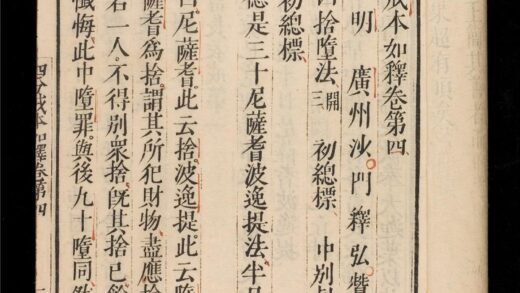 戒本如釋卷第四
明 廣州沙門釋弘贊
四捨墮法開三 初總標 中別
初總標
德是三十尼薩耆波逸提法半月
曰尼薩耆。此云捨。波逸提。此云墮
薩耆爲捨。謂其所犯財物。盡應捨
若一人。不得別衆捨。旣其捨已。餘
懺悔此中墮罪。與後九十墮同
四分戒本如釋卷第四